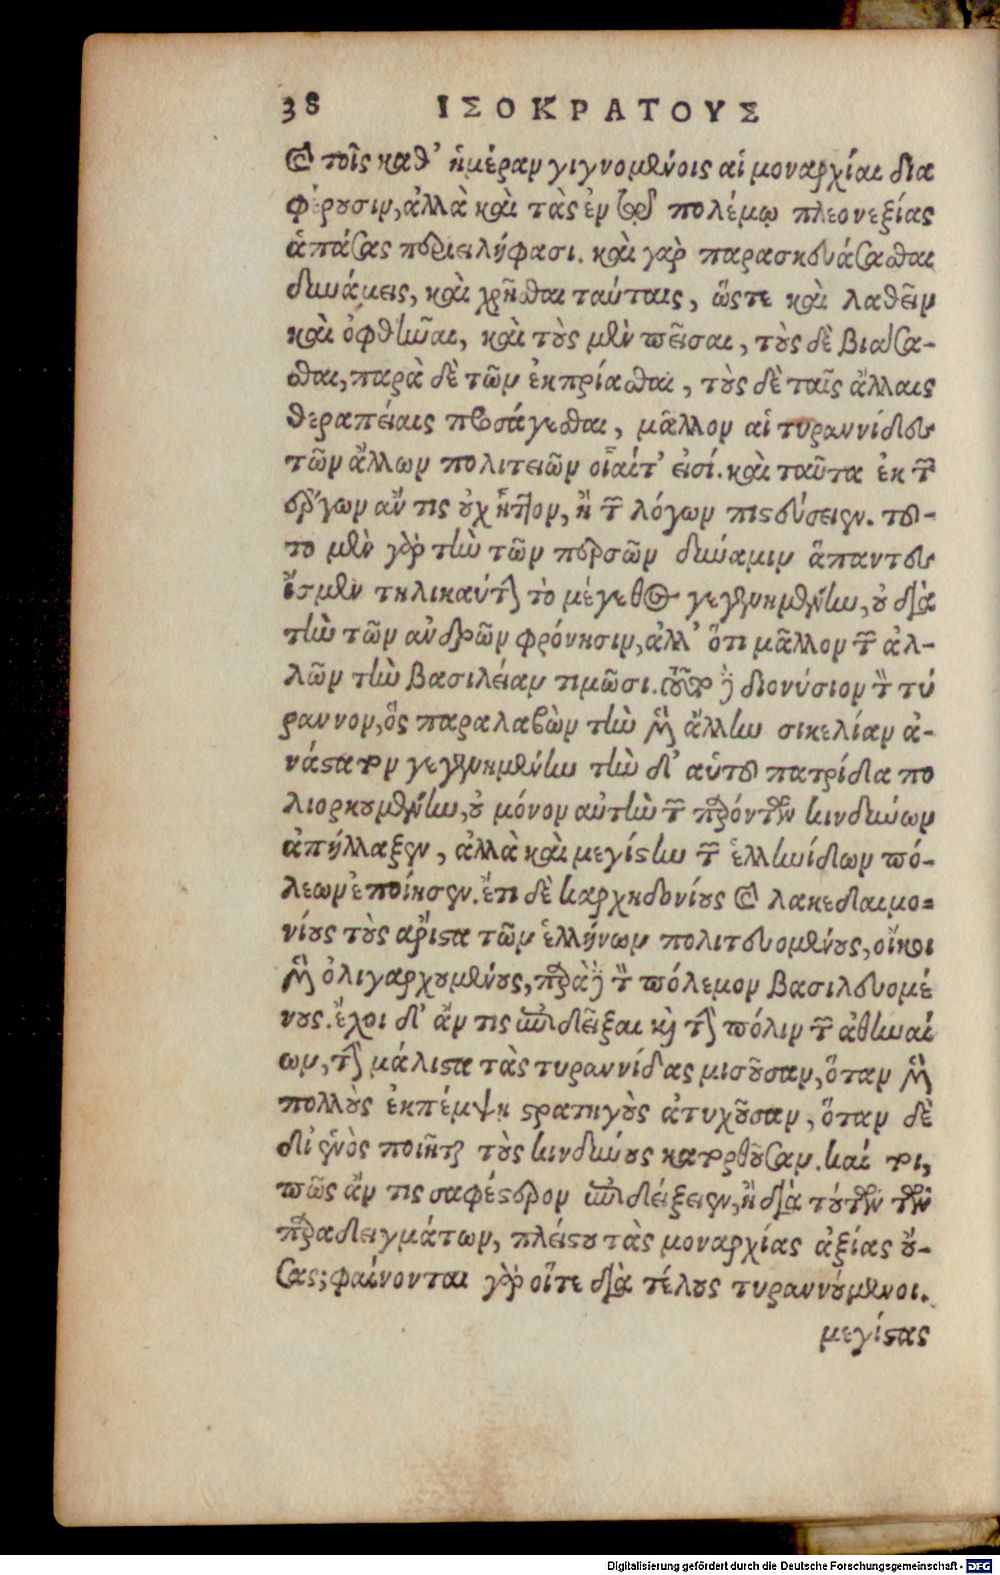 38 ΙΣΟΚΡΑΤΟΥΣ
καὶ τοῖς καθ' ἡμέραν γιγνομένοις αἱ μοναρχίαι δια
φέρουσιν, ἀλλὰ καὶ τὰς ἐν τῷ πολέμῳ πλεονεξίας
ἁπάσας περιειλήφασι. καὶ γὰρ παρασκευάσασθαι
δυνάμεις, καὶ χρῆσθαι ταύταις, ὥστε καὶ λαθεῖν
καὶ ὀφθῆναι, καὶ τοὺς μὲν πεῖσαι, τοὺς δὲ βιάσα-
σθαι, παρὰ δὲ τῶν ἐκπρίασθαι, τοὺς δὲ ταῖς ἄλλαις
θεραπείαις προσάγεσθαι, μᾶλλον αἱ τυραννίδες
τῶν ἄλλων πολιτειῶν οἷαί τ' εἰσί. καὶ ταῦτα ἐκ τῶν
ἔργων ἄν τις οὐχ ἧττον, ἢ τῶν λόγων πιστεύσειεν. τοῦ-
το μὲν γὰρ τὴν τῶν περσῶν δύναμιν ἅπαντες
ἴσμεν τηλικαύτην τὸ μέγεθος γεγενημένην, οὐ διὰ
τὴν τῶν ἀνδρῶν φρόνησιν, ἀλλ' ὅτι μᾶλλον τῶν ἀλ-
λῶν τὴν βασιλείαν τιμῶσι. τοῦτο δὲ διονύσιον τὸν τύ
ραννον, ὃς παραλαβὼν τὴν μὲν ἄλλην σικελίαν ἀ-
νάστατον γεγενημένην τὴν δ' αὑτοῦ πατρίδα πο
λιορκουμένην, οὐ μόνον αὐτὴν τῶν παρόντων κινδύνων
ἀπήλλαξεν, ἀλλὰ καὶ μεγίστην τῶν ἑλληνίδων πό-
λεων ἐποίησεν. ἔτι δὲ καρχηδονίους καὶ λακεδαιμο-
νίους τοὺς ἄριστα τῶν ἑλλήνων πολιτευομένους, οἴκοι
μὲν ὀλιγαρχουμένους, παρὰ δὲ τὸν πόλεμον βασιλευομέ
νους. ἔχοι δ' ἄν τις ἐπιδεῖξαι καὶ τὴν πόλιν τῶν ἀθηναί
ων, τὴν μάλιστα τὰς τυραννίδας μισοῦσαν, ὅταν μὲν
πολλοὺς ἐκπέμψῃ στρατηγοὺς ἀτυχοῦσαν, ὅταν δὲ
δι' ἑνὸς ποιῆται τοὺς κινδύνους κατορθοῦσαν. καί τοι,
πῶς ἄν τις σαφέστερον ἐπιδείξειεν, ἢ διὰ τούτων τῶν
παραδειγμάτων, πλείστου τὰς μοναρχίας ἀξίας οὔ-
σας; φαίνονται γὰρ οἵτε διὰ τέλους τυραννούμενοι.
μεγίστας
Digitalisierung gefördert durch die Deutsche Forschungsgemeinschaft - DFG